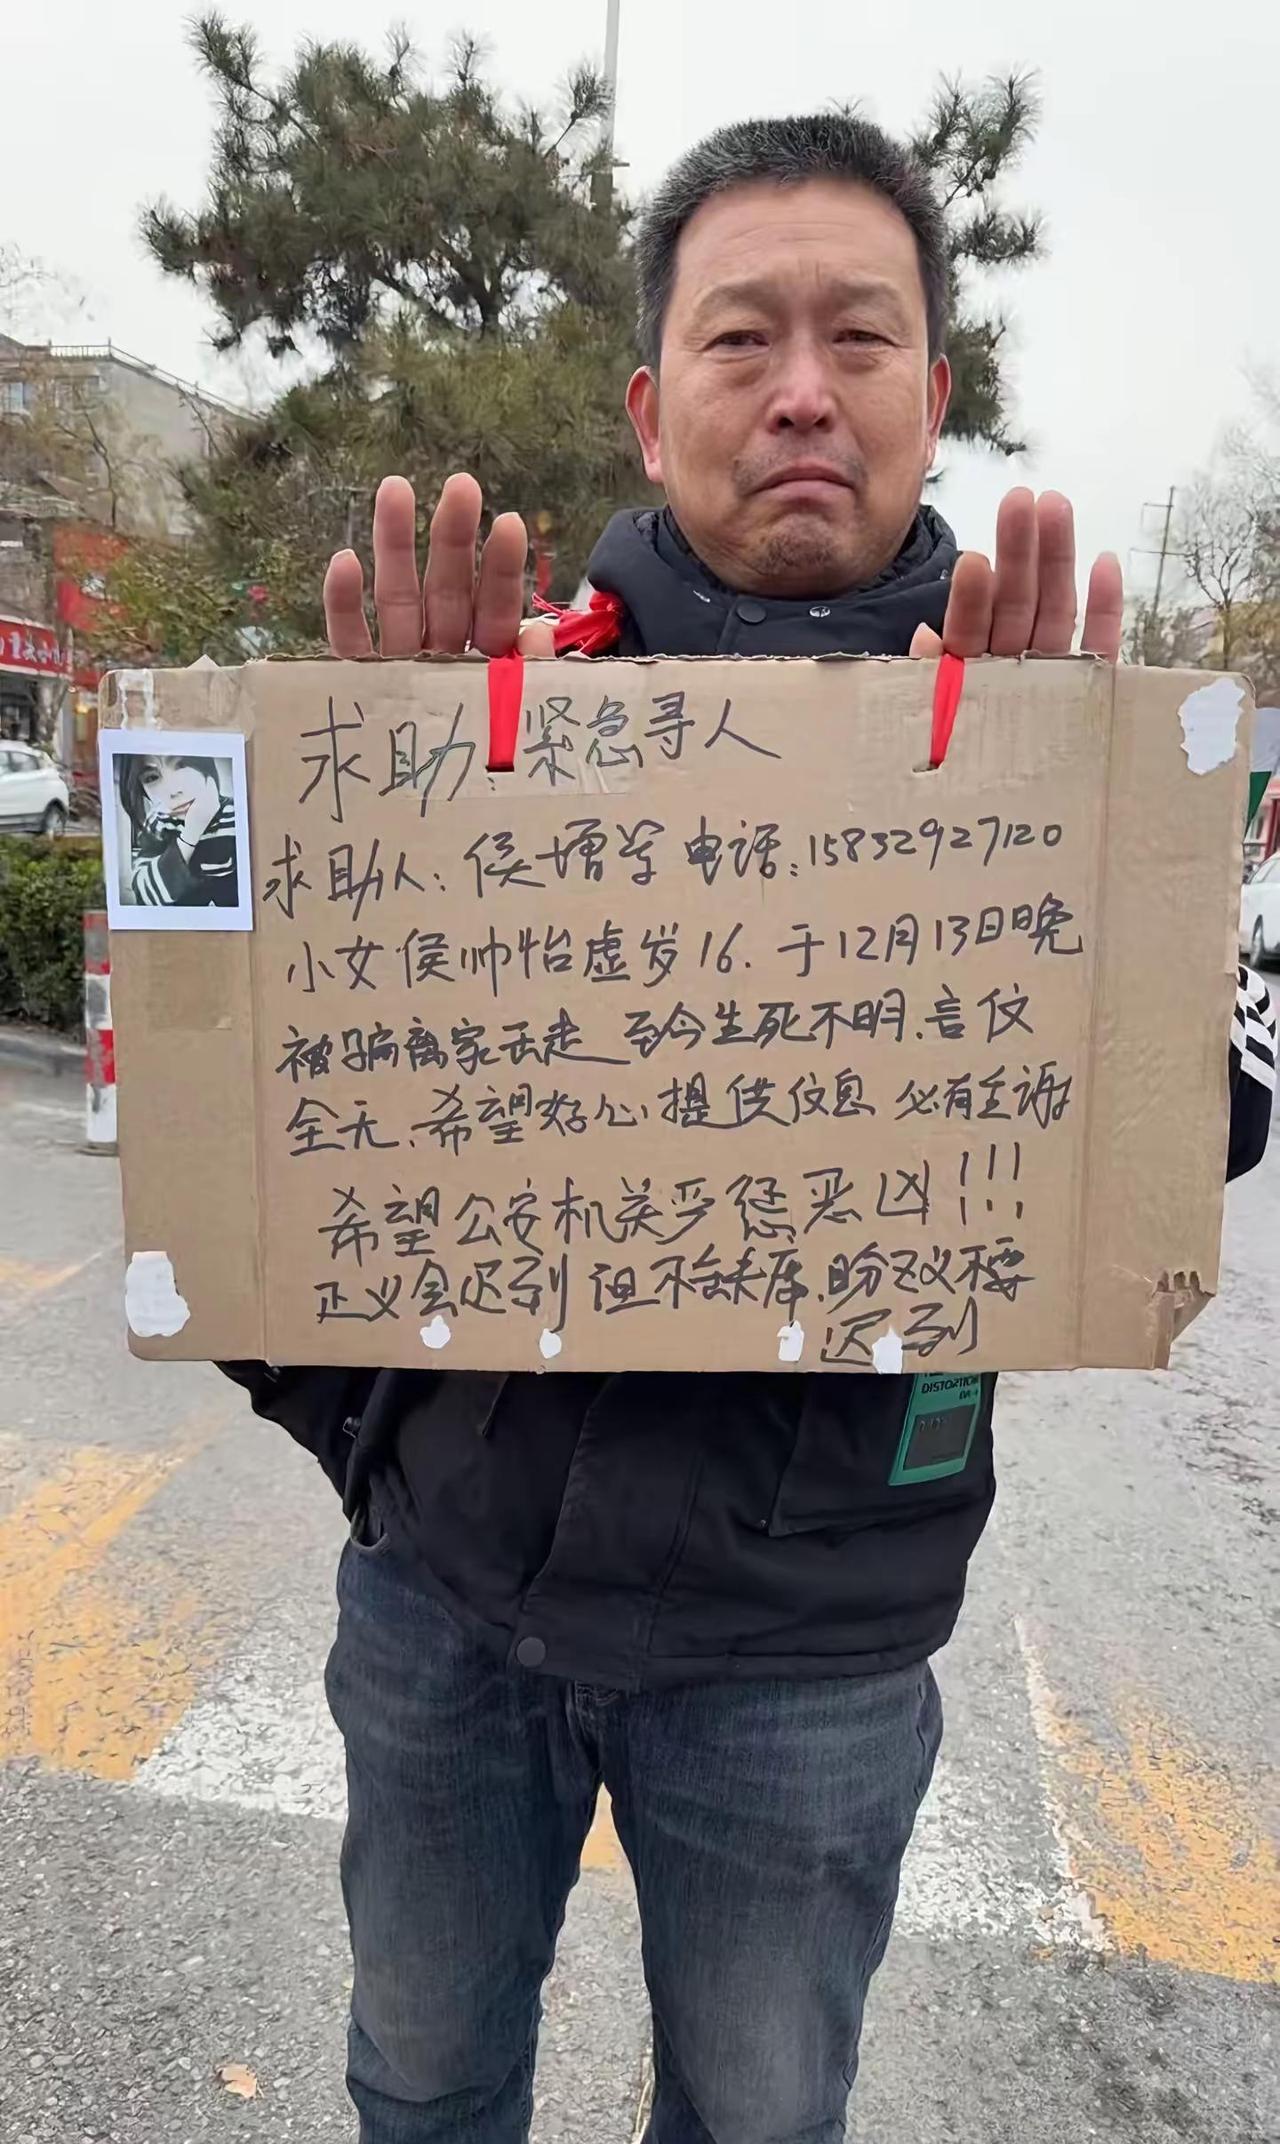 求助：紧急寻人
求助人：侯增学 电话：15832927120
小女侯帅怡虚岁16.于12月13日晚
被骗离家丢走 至今生死不明.言仪
全无、希望好心提供仪息 必有重谢
希望公安机关严惩恶凶!!!
正义会迟到但不会缺席.盼正义不要
迟到
DISTORTION